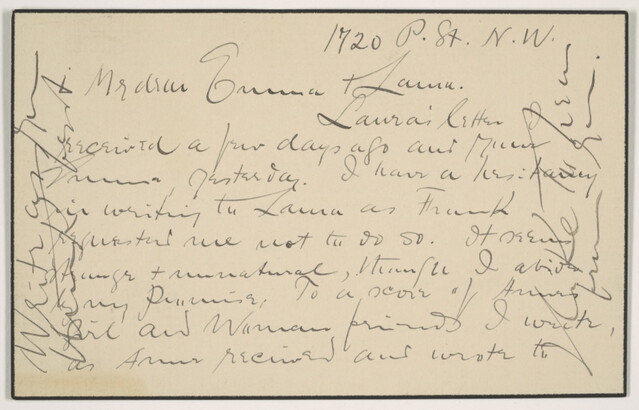 1720 P. St. N.W.
My dear Emma & Laura.
Laura's letter
received a few days ago and yours
Emma, yesterday. I have a hesitancy
in writing to Laura as Frank
requested me not to do so. It seems
strange & unnatural, though I abide
by my Promise. To a score of Annes
Girl and Woman friends I write,
as Anne received and wrote to
Write as